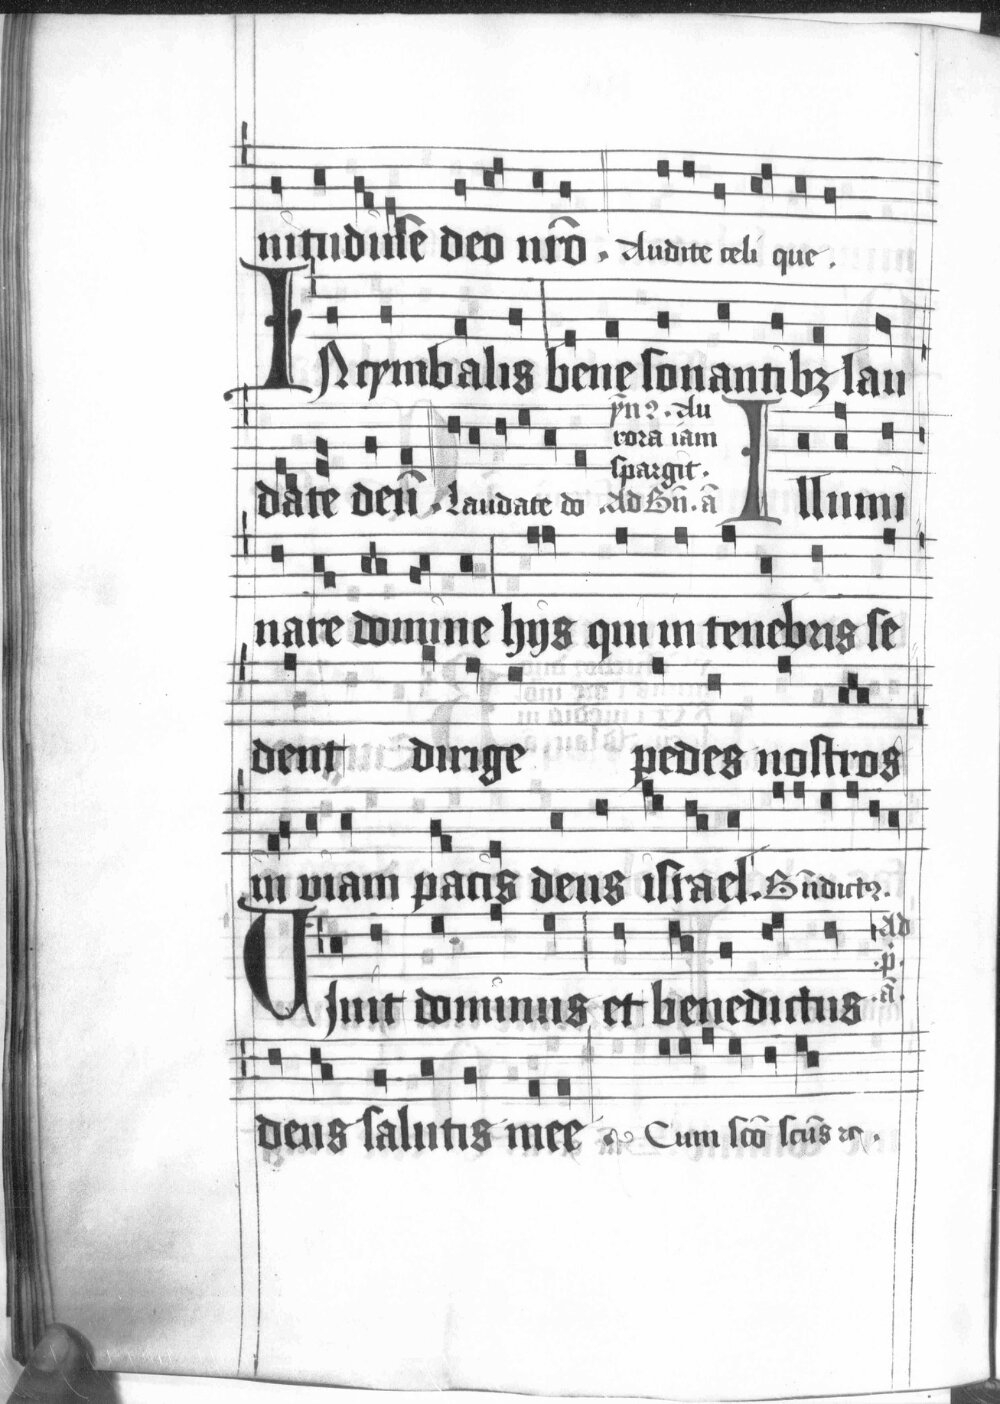 nitudinē deo nr̄o . Audite celi que .
IN cymbalis bene sonantibꝫ lau
date deū . Laudate do
yn̄ꝰ . Au
rora iam
spargit .
Ad Bn̄ . ā
Illumi
nare domine hijs qui in tenebris se
dent dirige pedes nostros
in viam pacis deus israel . Bn̄dictꝰ .
Viuit dominus et benedictus
Ad
.p̄.
.ā.
deus salutis mee . Cum sc̄o sc̄us ⁊c .